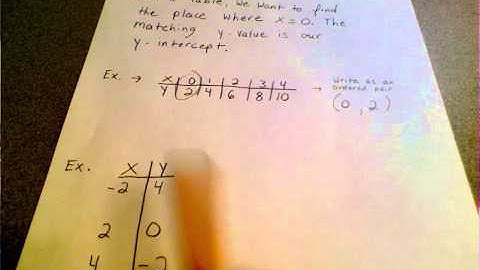 Table, we want to find
the place where x = 0. The
matching y-value is our
y-intercept.
Ex. → X 0 1 2 3 4 → Write as an
Y 2 4 6 8 10 ordered pair
(0, 2)
Ex. X Y
-2 4
2 0
4 -2